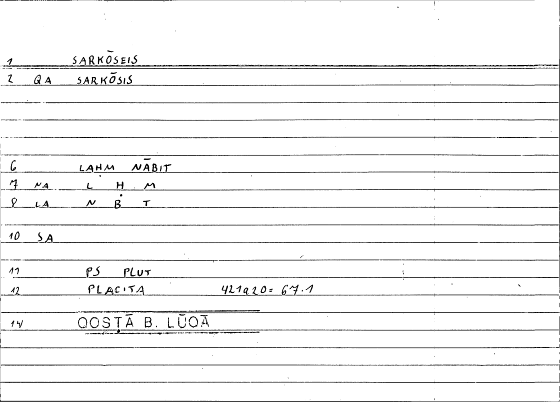 1 SARKŌSEIS
2 QA SARKŌSIS
6 LAḤM NĀBIT
7 NA L Ḥ M
8 LA N B T
10 SA
11 PS PLUT
12 PLACITA 421a20 = 67.1
14 QOSṬĀ B. LŪQĀ